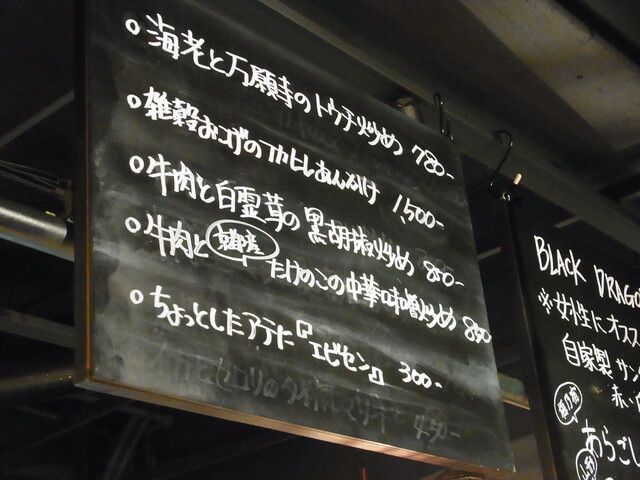 海老と万願寺のトウチ炒め 780-
雑穀おコゲのフカヒレあんかけ 1,500-
牛肉と白霊茸の黒胡椒炒め 850-
牛肉と たけのこの中華味噌炒め 850
ちょっとしたアテに『エビセン』 300-
450-
BLACK DRAGO
※女性にオスス
自家製サン
赤・
あらごし